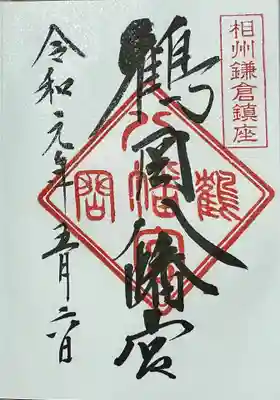 相州鎌倉鎮座
鶴岡八幡宮
鶴岡八幡宮
令和元年五月六日